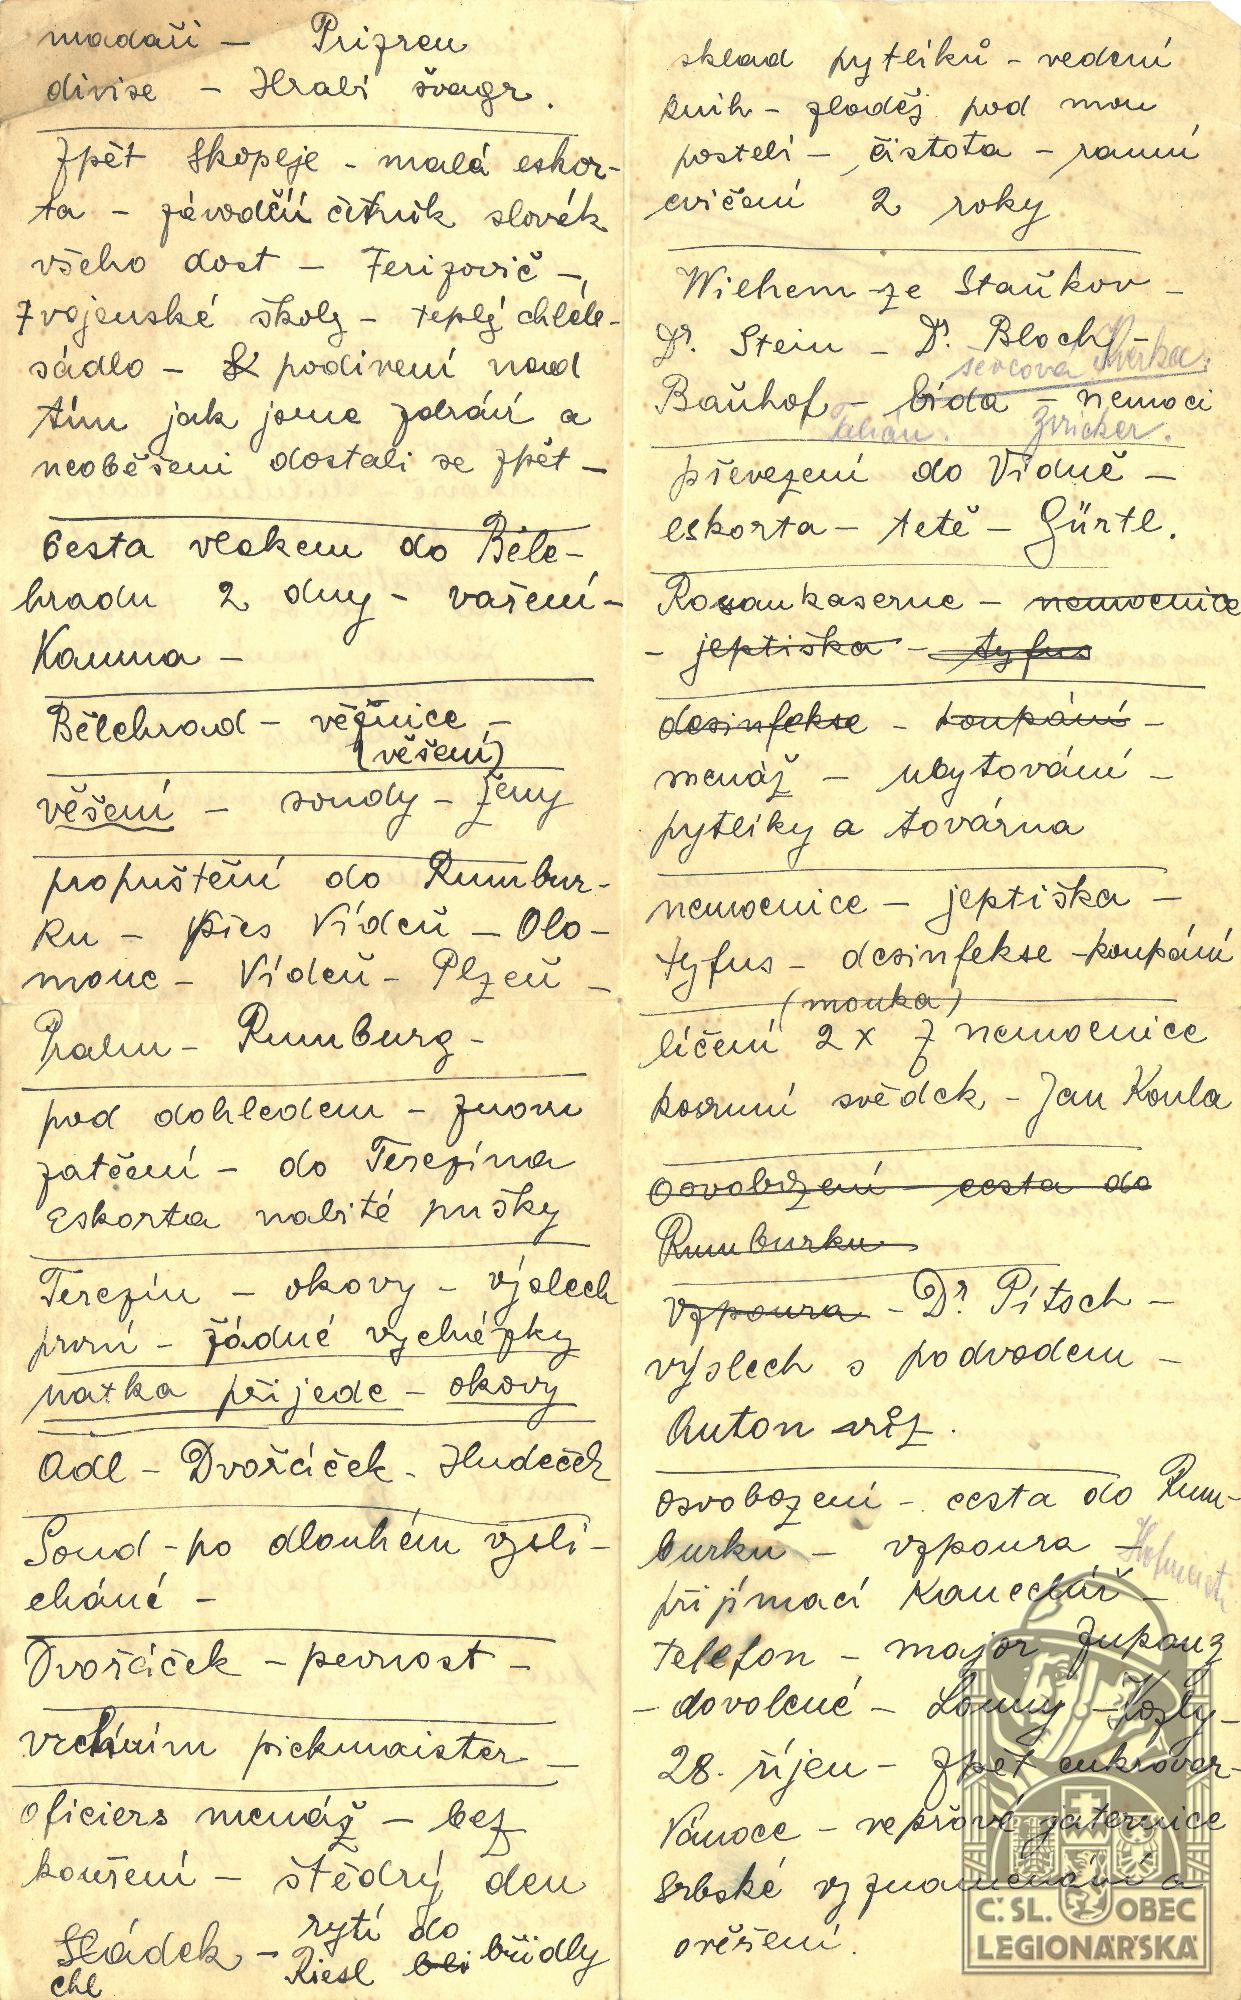 maďaři – Prizren
divise – Hrabí švagr.
Zpět Skoplje – malá eskor-
ta – závodčí četník slovák
všeho dost – Ferizovič –
z vojenské školy – teplý chléb –
sádlo – podivení nad
tím jak jsme zdrávi a
neoběšeni dostali se zpět –
Cesta vlakem do Běle-
hradu 2 dny – vaření –
Kamna –
Bělehrad – věznice –
(věšení)
věšení – soudy – ženy
propuštění do Rumbur-
ku – přes Vídeň – Olo-
mouc – Vídeň – Plzeň –
Prahu – Rumburg –
pod dohledem – znovu
zatčení – do Terezína
Eskorta nabité pušky
Terezín – okovy – výslech
první – žádné vycházky
matka přijede – okovy
Adl – Dvořáček – Hudeček
Soud – po dlouhém vysli-
cháné –
Dvořáček – pevnost –
vrchním pickmaister –
oficiers menáž – bez
kouření – štědrý den
Sládek – rytí do břidly
chl Riesl
sklad pytlíků – vedení
knih – zloděj pod mou
postelí – čistota – ranní
cvičení 2 roky
Wilhem ze Staňkov –
Dr. Stein – Dr. Bloch –
ševcová
Bauhof – bída – nemoci
Zwicker.
převezení do Vídně –
eskorta – tetě – Gürtl.
Rossaukaserne – nemocnice
– jeptiška – tyfus
desinfekse – koupání –
menáž – ubytování –
pytlíky a továrna
nemocnice – jeptiška –
tyfus – desinfekse – koupání
(mouka)
líčení 2 x z nemocnice
korunní svědek – Jan Koula
Osvobození – cesta do
Rumburku
Vzpoura – Dr. Pitsch –
výslech s podvodem –
Anton
osvobození – cesta do Rum-
burku – vzpoura –
přijímací kancelář –
telefon – major Zupanz
– dovolené – Louny – Kozly –
28. říjen – zpět cukrovar –
Vánoce – vepřové jaternice
Srbské vyznamenání a
ověšení.
Č. SL. OBEC
LEGIONÁŘSKÁ